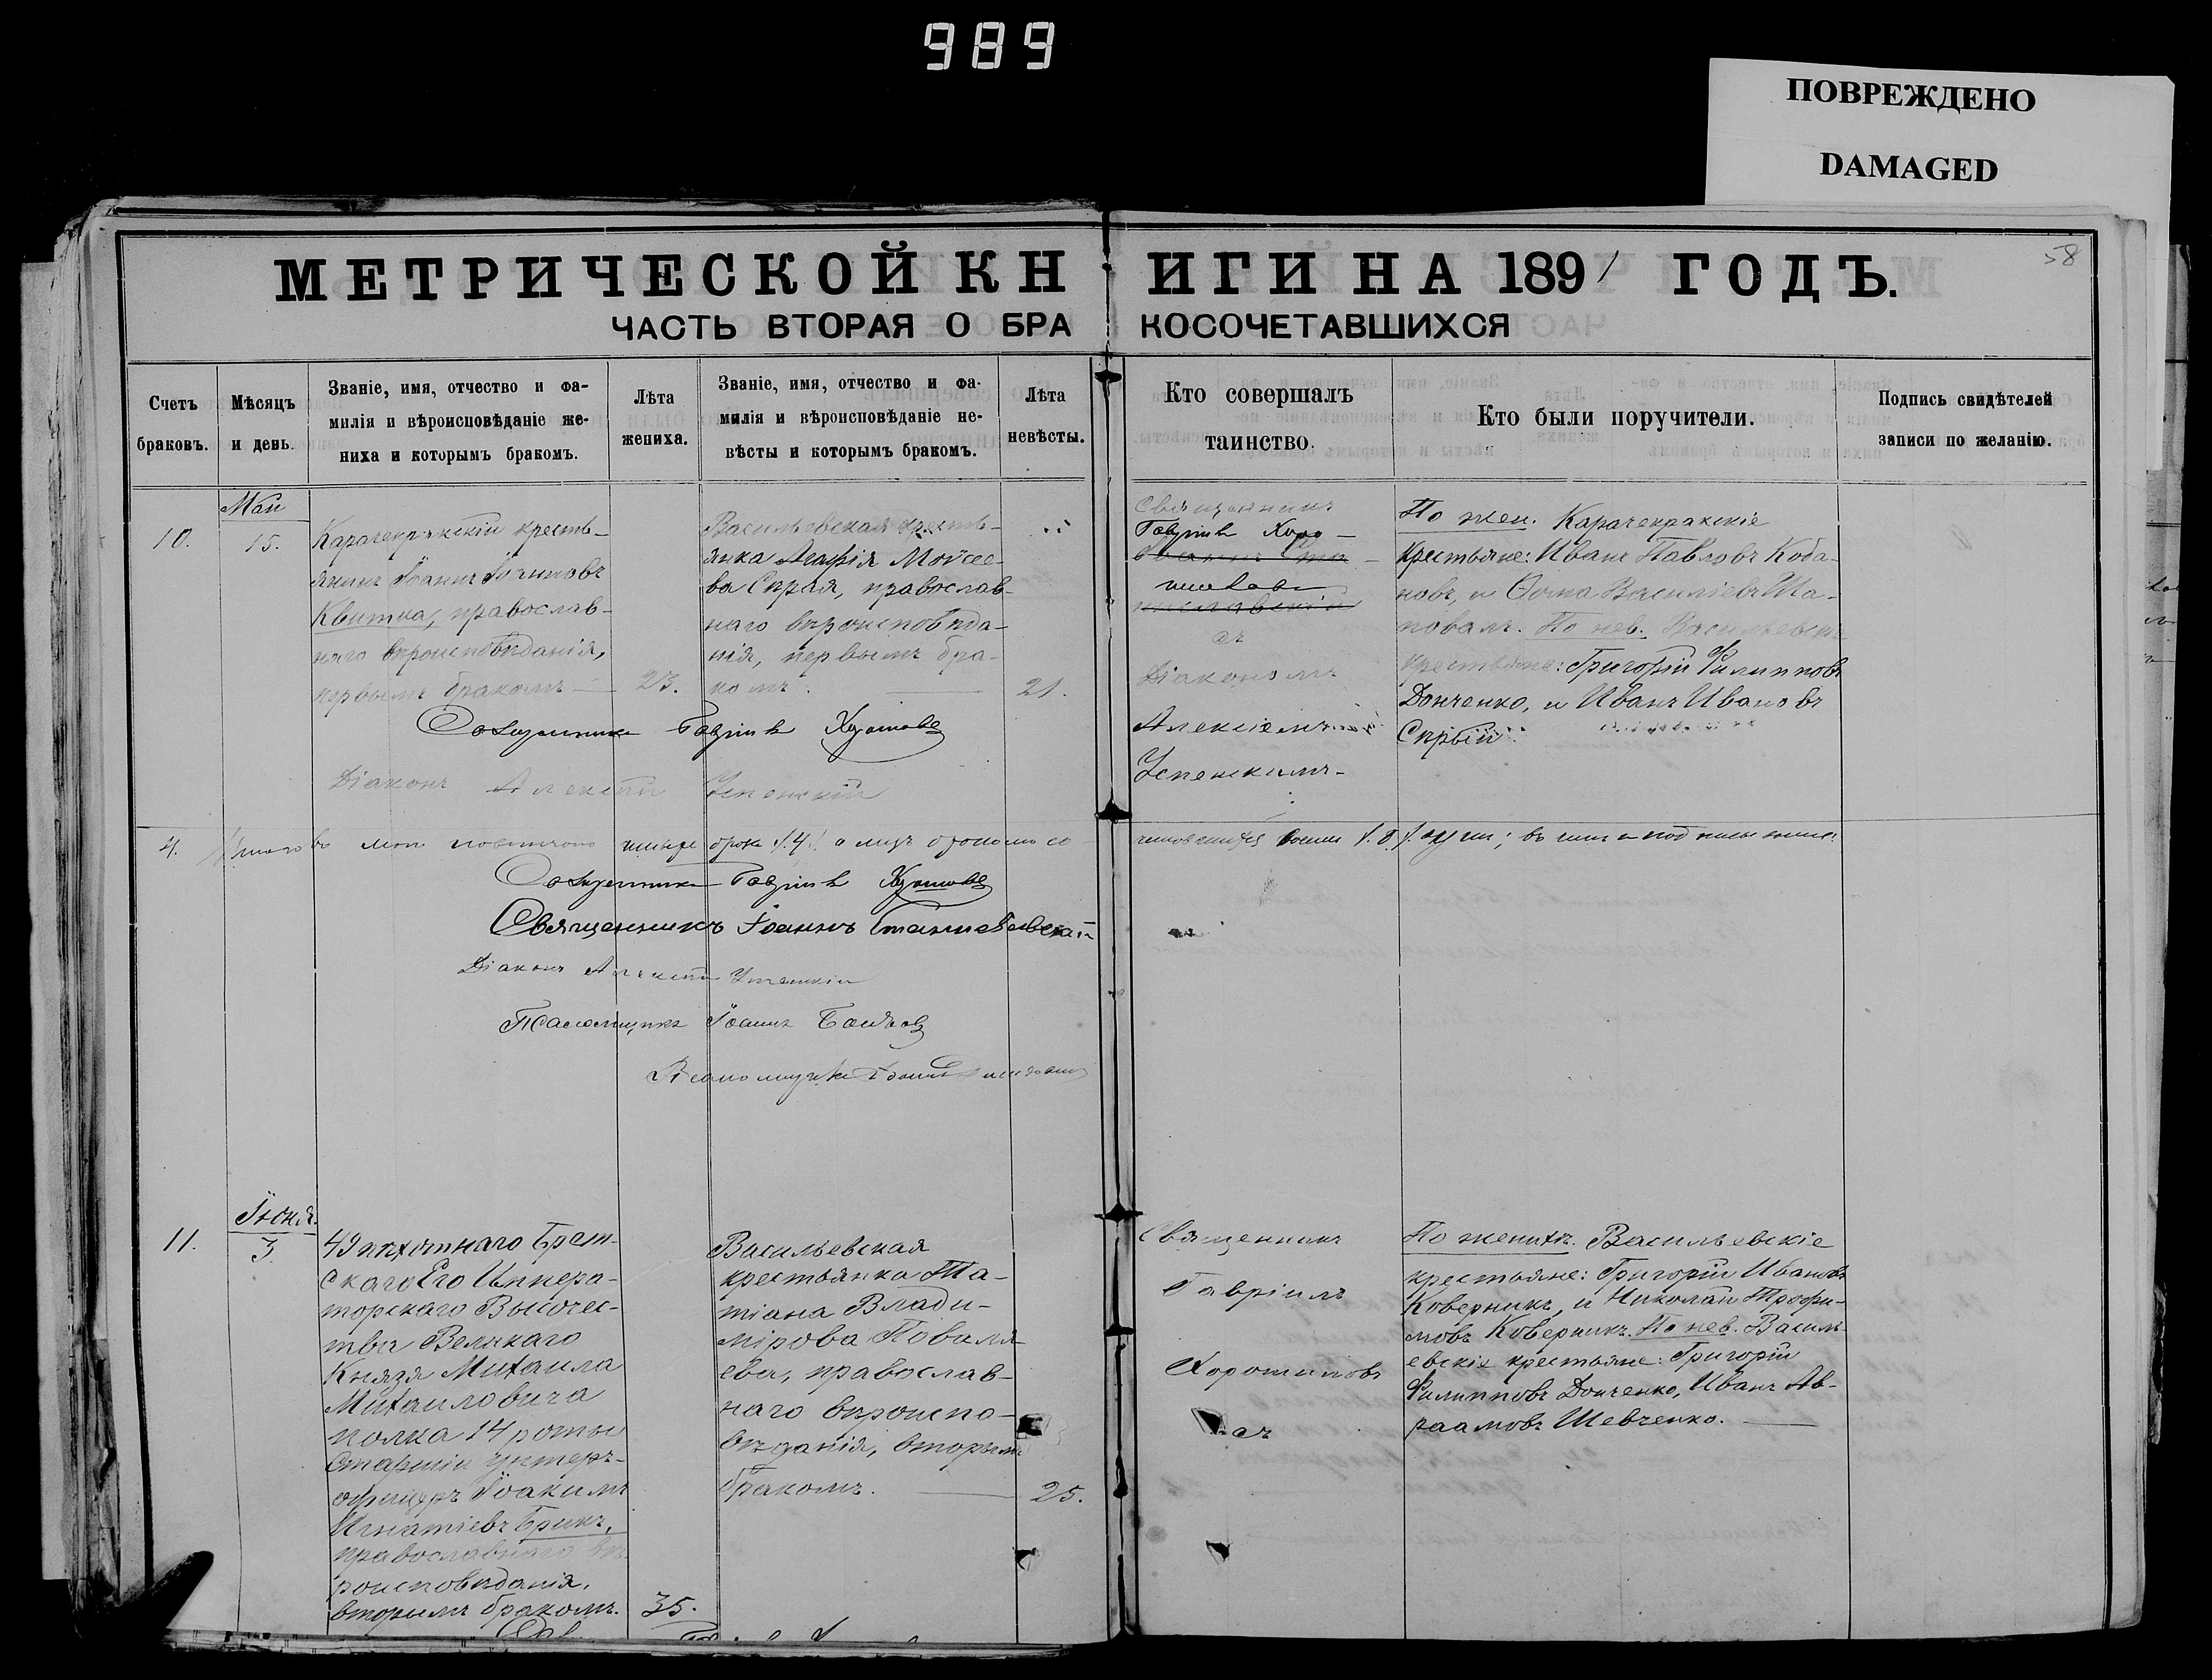 989
ПОВРЕЖДЕНО
DAMAGED
58
МЕТРИЧЕСКОЙ КНИГИ НА 1891 ГОДЪ.
ЧАСТЬ ВТОРАЯ О БРАКОСОЧЕТАВШИХСЯ
Счетъ
браковъ.
Мѣсяцъ
и день.
Званіе, имя, отчество и фа-
милія и вѣроисповѣданіе же-
ниха и которымъ бракомъ.
Лѣта
жениха.
Званіе, имя, отчество и фа-
милія и вѣроисповѣданіе не-
вѣсты и которымъ бракомъ.
Лѣта
невѣсты.
Кто совершалъ
таинство.
Кто были поручители.
Подпись свидѣтелей
записи по желанію.
10.
Май
15.
Карачекракскій кресть-
янинъ Іоаннъ Іоанновъ
Квитка, православ-
наго вѣроисповѣданія,
первымъ бракомъ
23.
Васильевская кресть-
янка Агафія Моѵсее-
ва Сѣрая, православ-
наго вѣроисповѣда-
нія, первымъ бра-
комъ.
21.
Священникъ
Гавріилъ Хоро-
шиловъ
съ
Діакономъ
Алексіемъ
Успенскимъ
По жен. Карачекракскіе
крестьяне: Иванъ Павловъ Коба-
новъ, и Ѳома Василіевъ Ша-
повалъ. По нев. Васильевск
крестьяне: Григорій Филипповъ
Донченко, и Иванъ Ивановъ
Сѣрый
Священникъ Гавріилъ Хорошиловъ
Діаконъ Алексій Успенскій
4.
Итого въ маѣ
четыре брака /4/ а лицъ
восемь /8/
Священникъ Гавріилъ Хорошиловъ
Священникъ Іоаннъ Станиславскій
Діаконъ Алексій Успенскій
Псаломщикъ Іоаннъ
Псаломщикъ
11.
Іюня
3.
49 пѣхотнаго Брест-
скаго Его Импера-
торскаго Высочес-
тва Великаго
Князя Михаила
Михаиловича
полка 14 роты
Старшій унтеръ-
офицеръ Іоакимъ
Игнатіевъ Брикъ,
православнаго вѣ-
роисповѣданія,
вторымъ бракомъ.
35.
Васильевская
крестьянка Та-
тіана Влади-
мірова Поваля
ева, православ-
наго вѣроиспо-
вѣданія, вторымъ
бракомъ.
25.
Священникъ
Гавріилъ
Хорошиловъ
съ
По женихѣ. Васильевскіе
крестьяне: Григорій Ивановъ
Коверникъ, и Николай Трофи-
мовъ Коверникъ. По нев. Василь-
евскіе крестьяне: Григорій
Филипповъ Донченко, Иванъ Ав-
раамовъ Шевченко.